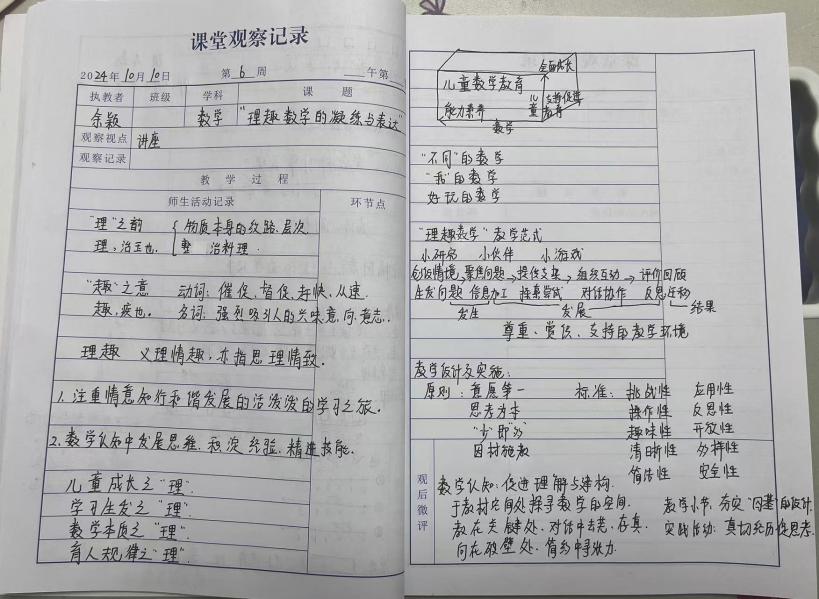 课堂观察记录
2024年10月10日 第6周 ___午第
执教者 班级 学科 课题
余颖 数学 "理趣数学的凝练与表达"
观察视点 讲座
观察记录
教学过程
师生活动记录 环节点
"理"之韵 物质本身的纹路、层次
理,治玉也. 整治料理.
"趣"之意 动词:催促、督促、赶快、从速.
趣,疾也. 名词:强烈吸引人的兴味意、向、意志.
理趣 义理情趣,亦指思理情致.
1.注重情意知行和谐发展的活泼泼的学习之旅.
2.数学认知中发展思维、积淀经验、精进技能.
儿童成长之"理".
学习生发之"理".
数学本质之"理".
育人规律之"理".
全面成长
儿童数学教育
支持促进
能力素养 儿童教育
数学
"不同"的数学
"我"的数学
好玩的数学
"理趣数学"教学范式
小研究 小伙伴 小游戏
创设情境→聚焦问题→提供支架→组织互动→评价回顾
生发问题 信息加工 探索尝试 对话协作 反思迁移
发生 发展 结果
尊重、赏识、支持的教学环境
教学设计及实施:
原则:意愿第一 标准:挑战性 应用性
思考为本 操作性 反思性
"少"即"多" 趣味性 开放性
因材施教 清晰性 多样性
简洁性 安全性
观后微评
数学认知:促进理解与建构.
于教材空间处探寻数学的空间. 教学小节:夯实"同基"的设计
教在关键处、对话中去芜、存真. 实践活动:真切经历促思考.
向在破壁处、简约中寻张力.